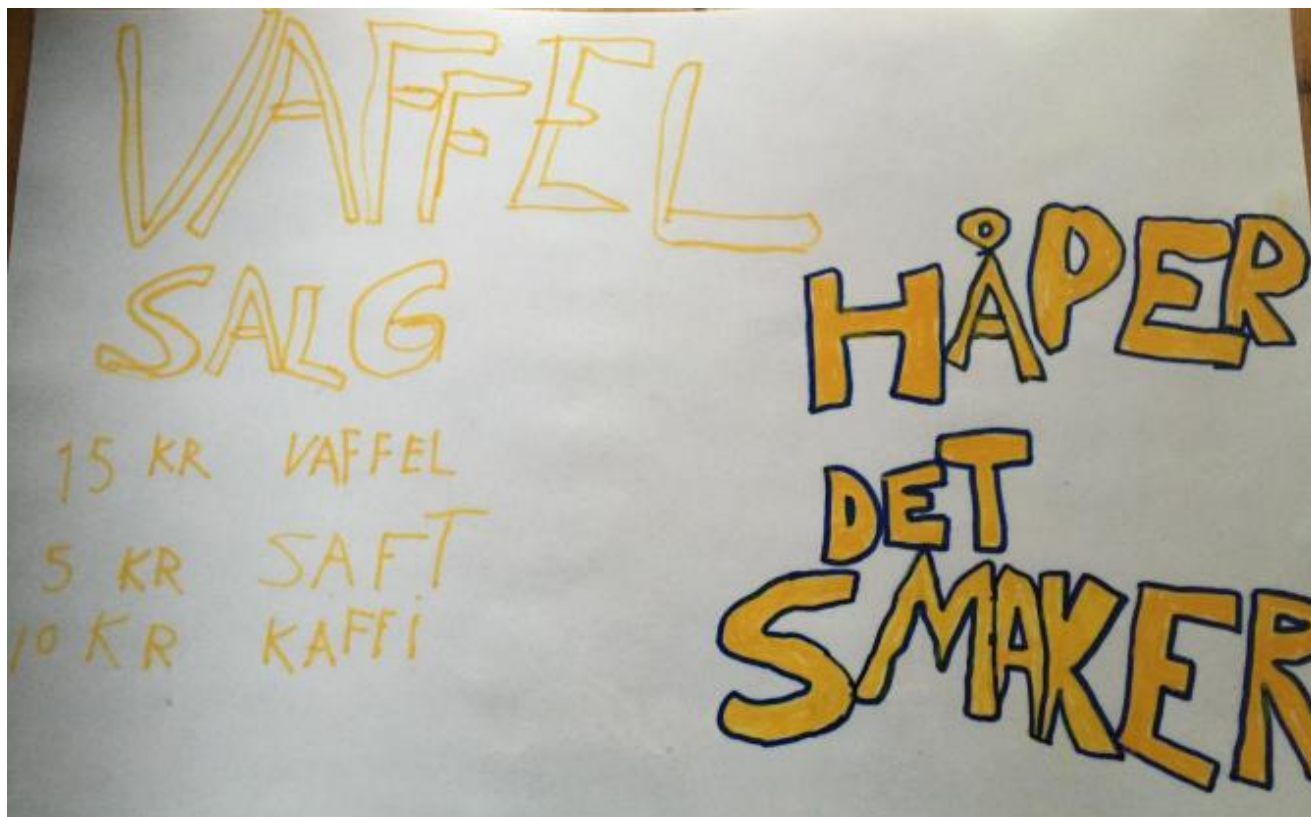 VAFFEL
SALG
15 KR VAFFEL
5 KR SAFT
10 KR KAFFI
HÅPER
DET
SMAKER